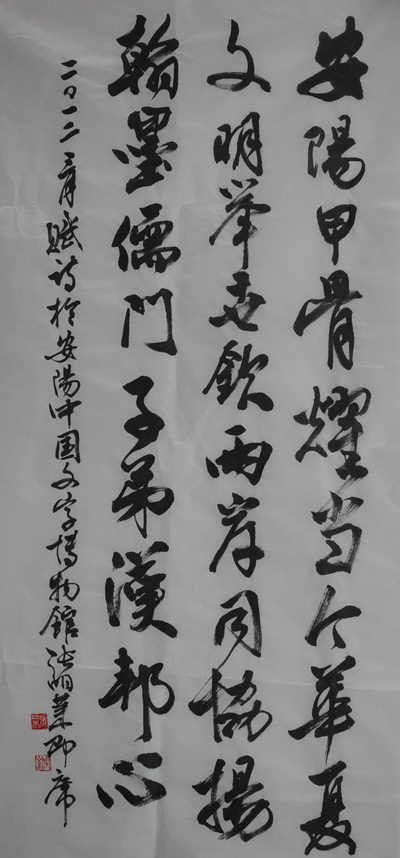 安陽甲骨耀当今華夏
文明举世欽兩岸同協揚
翰墨儒門子弟漢邦心
二〇一二年二月賦詩於安陽中国文字博物館張炳煌即席